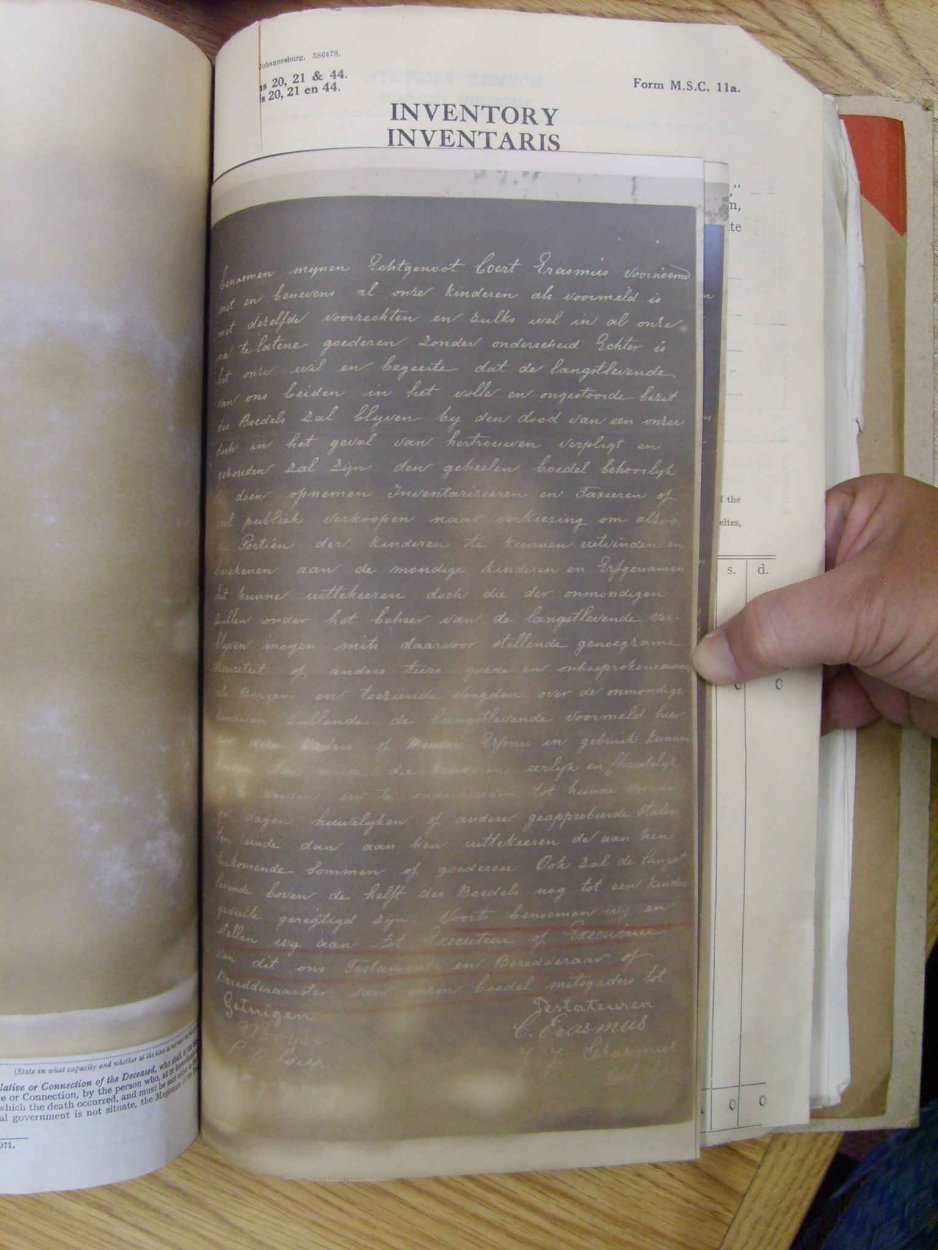 Johannesburg. 386478.
ns 20, 21 & 44.
s 20, 21 en 44.
Form M.S.C. 11a.
INVENTORY
INVENTARIS
benoemen mynen Echtgenoot Coert Erasmus voornoemd
met en benevens al onze kinderen als voormeld is
met dezelfde voorrechten en zulks wel in al onze
na te latene goederen zonder onderscheid Echter is
het onze wil en begeerte dat de langstlevende
van ons beiden in het volle en ongestoorde bezit
des Boedels zal blyven by den dood van een onzer
doch in het geval van hertrouwen verpligt en
gehouden zal zyn den geheelen boedel behoorlyk
te doen opnemen Inventariseeren en Taxeeren of
wel publiek verkoopen naar verkiezing om alzoo
de Portiën der kinderen te kunnen uitvinden en
berekenen aan de mondige kinderen en Erfgenamen
het hunne uittekeeren doch die der onmondigen
zullen onder het beheer van de langstlevende ver-
blyven mogen mits daarvoor stellende genoegzame
Securiteit of anders twee goede en
als Borgen en toeziende voogden over de onmondige
kinderen zullende de langstlevende voormeld hier
vaders of Erfnis in gebruik kunnen
die kinderen eerlyk en Christelyk
op en te onderhouden tot hunne
dagen huwelyken of andere geapprobeerde staten
ten einde dan aan hen uittekeeren de aan hen
toekomende sommen of goederen Ook zal de langst
levende boven de helft des Boedels nog tot een kinder
gedeelte geregtigd zyn Voorts benoemen wy en
stellen wy aan tot Executeur of Executrice
van dit ons Testament en Beredderaar of
Beredderaarster van onzen boedel mitsgaders tot
Getuigen
Testateuren
C. Erasmus
Erasmus
n,
te
f the
eltes,
s. d.
0 0
0 0
(State in what capacity and whether at the time
lative or Connection of the Deceased, who
e or Connection, by the person who, at or
which the death occurred, and must be
al government is not situate, the
971.